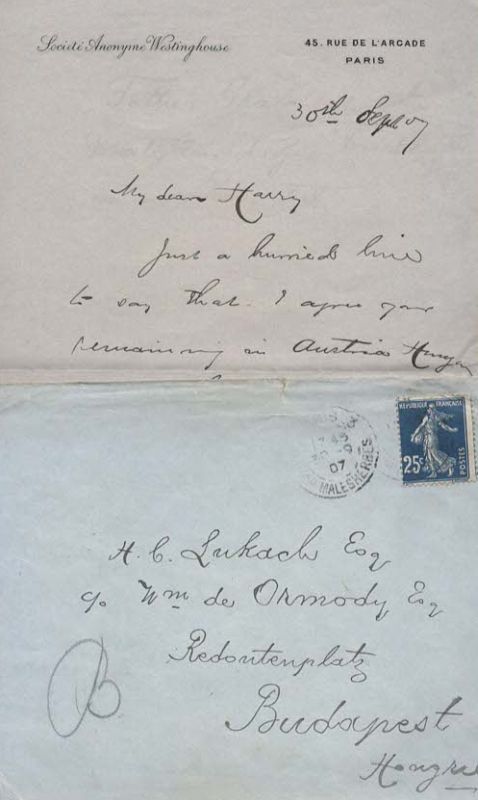 Societé Anonyme Westinghouse
45. RUE DE L'ARCADE
PARIS
30th Sept 07
My dear Harry
Just a hurried line
to say that I agree your
remaining in Austria Hungary
REPUBLIQUE FRANÇAISE
25c
POSTES
07
MALESHERBES
H. C. Lukach Esq
c/o Wm de Ormody Esq
Redoutenplatz
Budapest
Hongrie
B